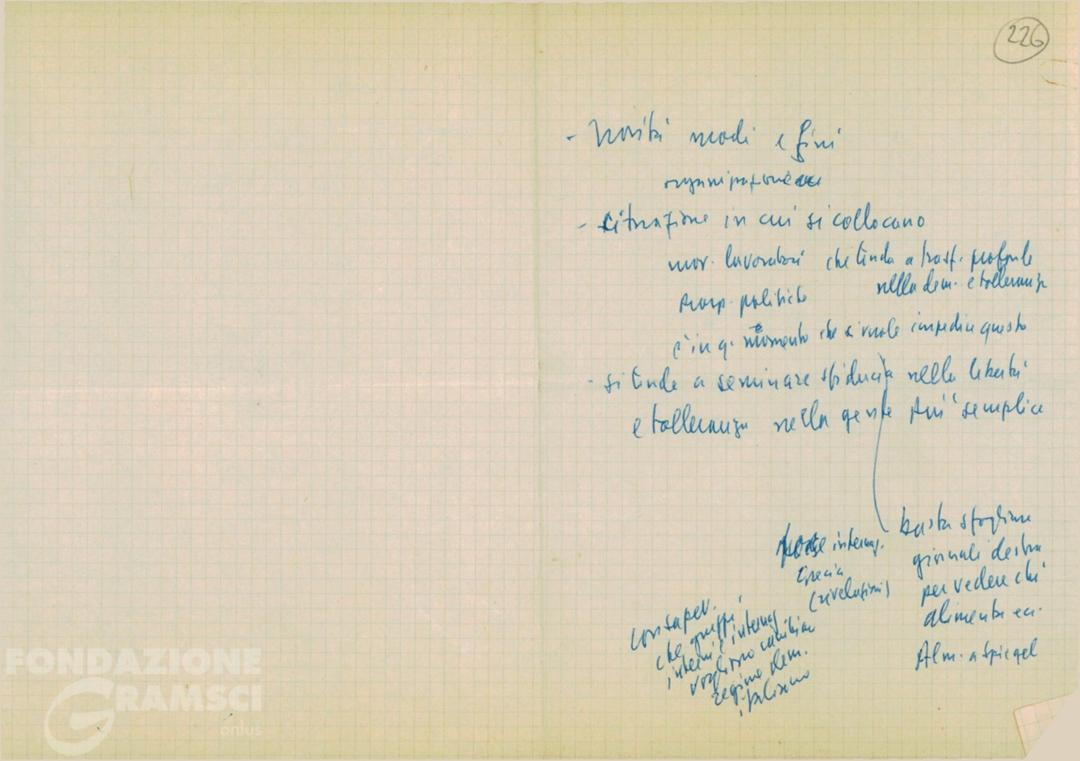 226
- Novità modi e fini
organizzazione
- situazione in cui si collocano
mov. lavoratori che tende a trasf. profonde
nella dem. e tolleranza
politiche
è in q. momento che si vuole impedire questo
- si tende a seminare sfiducia nella libertà
e tolleranza nella gente più semplice
basta sfogliare
giornali destra
per vedere chi
alimenta ecc.
Alm. a Spiegel
forze internaz.
Grecia
(rivelazioni)
consapev.
che gruppi
interni e internaz.
vogliono cambiare
regime dem.
italiano
FONDAZIONE
GRAMSCI
onlus